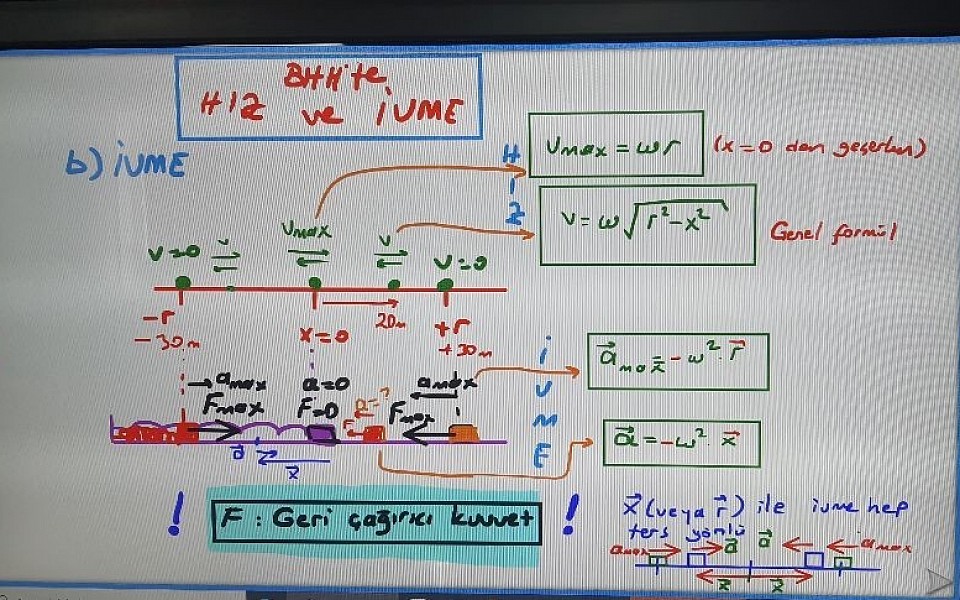 BHH'te
HIZ ve İVME
b) İVME
HIZ
Vmax = ωr (x=0 dan geçerken)
v = ω√r²-x² Genel formül
v=0 v Vmax v v=0
-r x=0 20m +r
-30m +30m
İVME
a⃗max = -ω². r⃗
a⃗ = -ω². x⃗
amax a=0 a=? amax
Fmax F=0 F Fmax
a⃗ x⃗
! F : Geri çağırıcı kuvvet !
x⃗ (veya r⃗) ile ivme hep
ters yönlü
amax a⃗ a⃗ amax
x⃗ x⃗